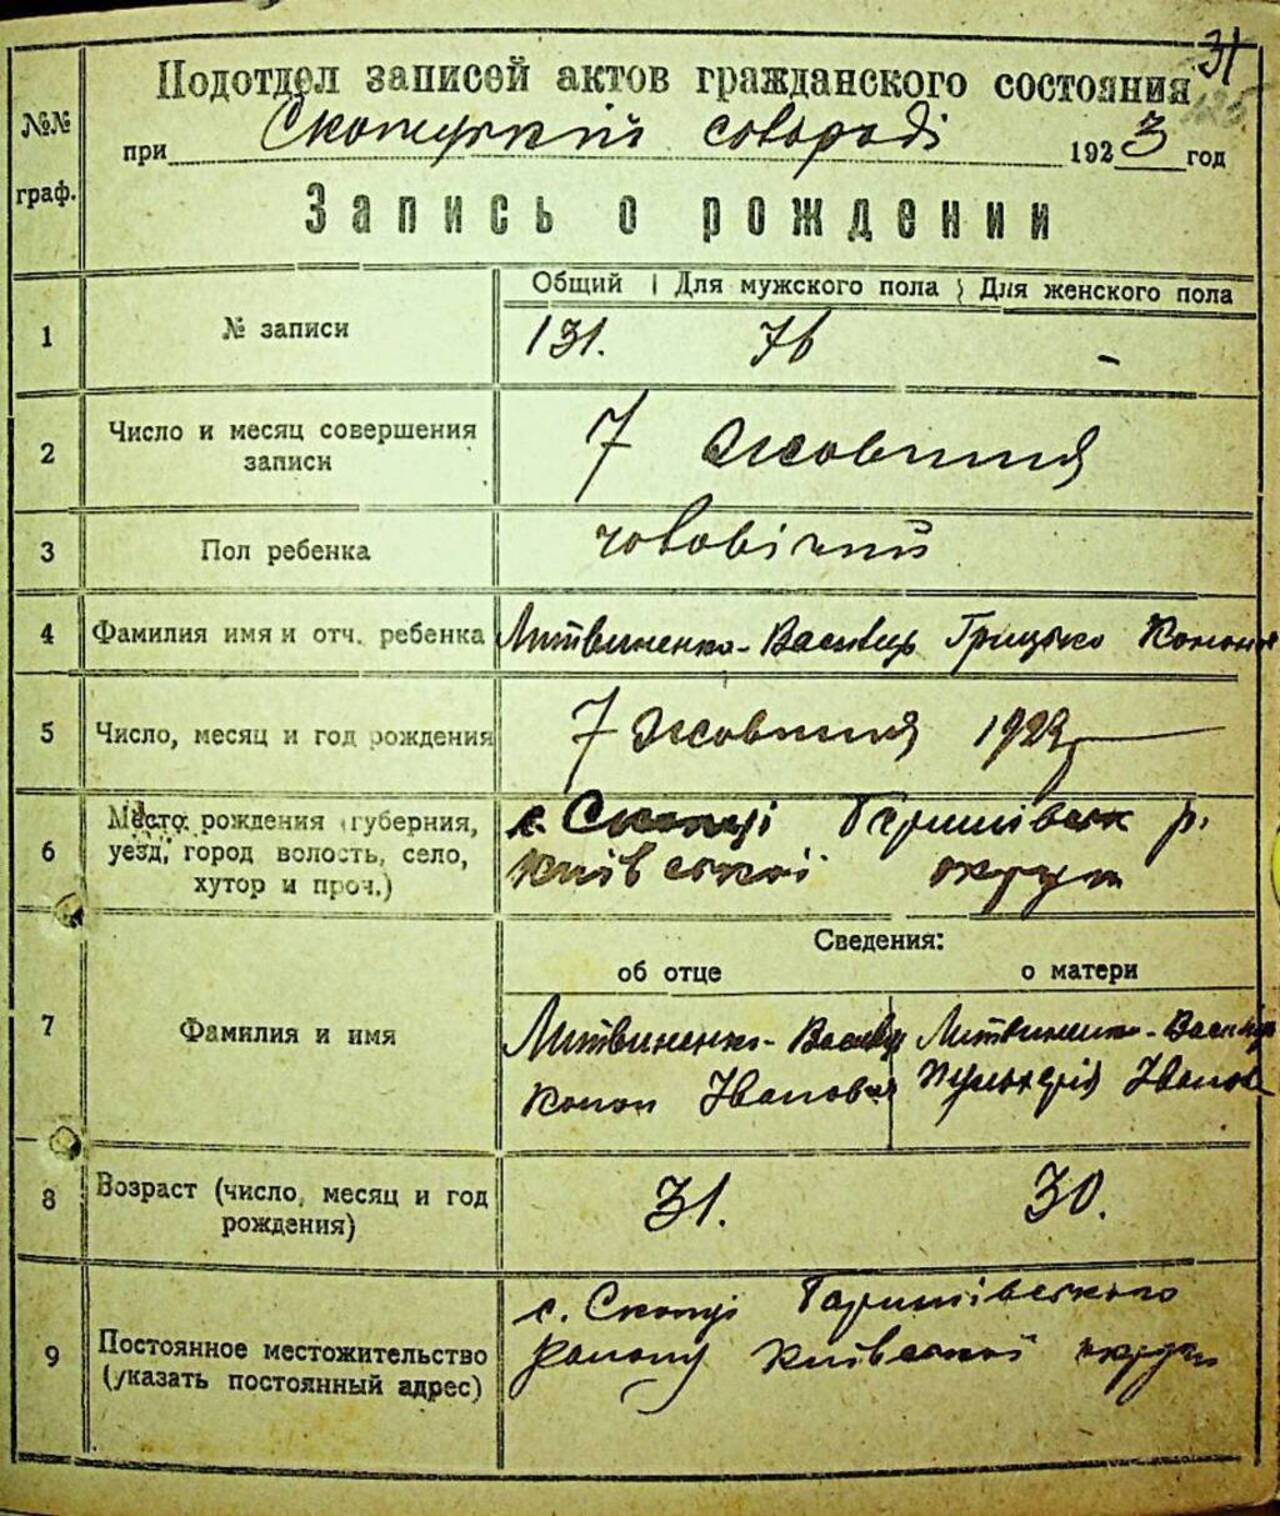 31
Подотдел записей актов гражданского состояния
№№ граф.
при Скопецкій совораді 1923 год
Запись о рождении
Общий Для мужского пола Для женского пола
1 № записи 131. 76 -
2 Число и месяц совершения записи 7 Жовтня
3 Пол ребенка чоловічий
4 Фамилия имя и отч. ребенка Литвиненко-Василець Грицько Конон
5 Число, месяц и год рождения 7 Жовтня 1923
6 Место рождения (губерния, уезд, город волость, село, хутор и проч.) с. Скопці р.
Київської округи
Сведения:
об отце о матери
7 Фамилия и имя Литвиненко-Василець Литвиненко-Василець
Конон Іванович Пульхерія Іванов
8 Возраст (число, месяц и год рождения) 31. 30.
9 Постоянное местожительство (указать постоянный адрес) с. Скопці
Району Київської округи